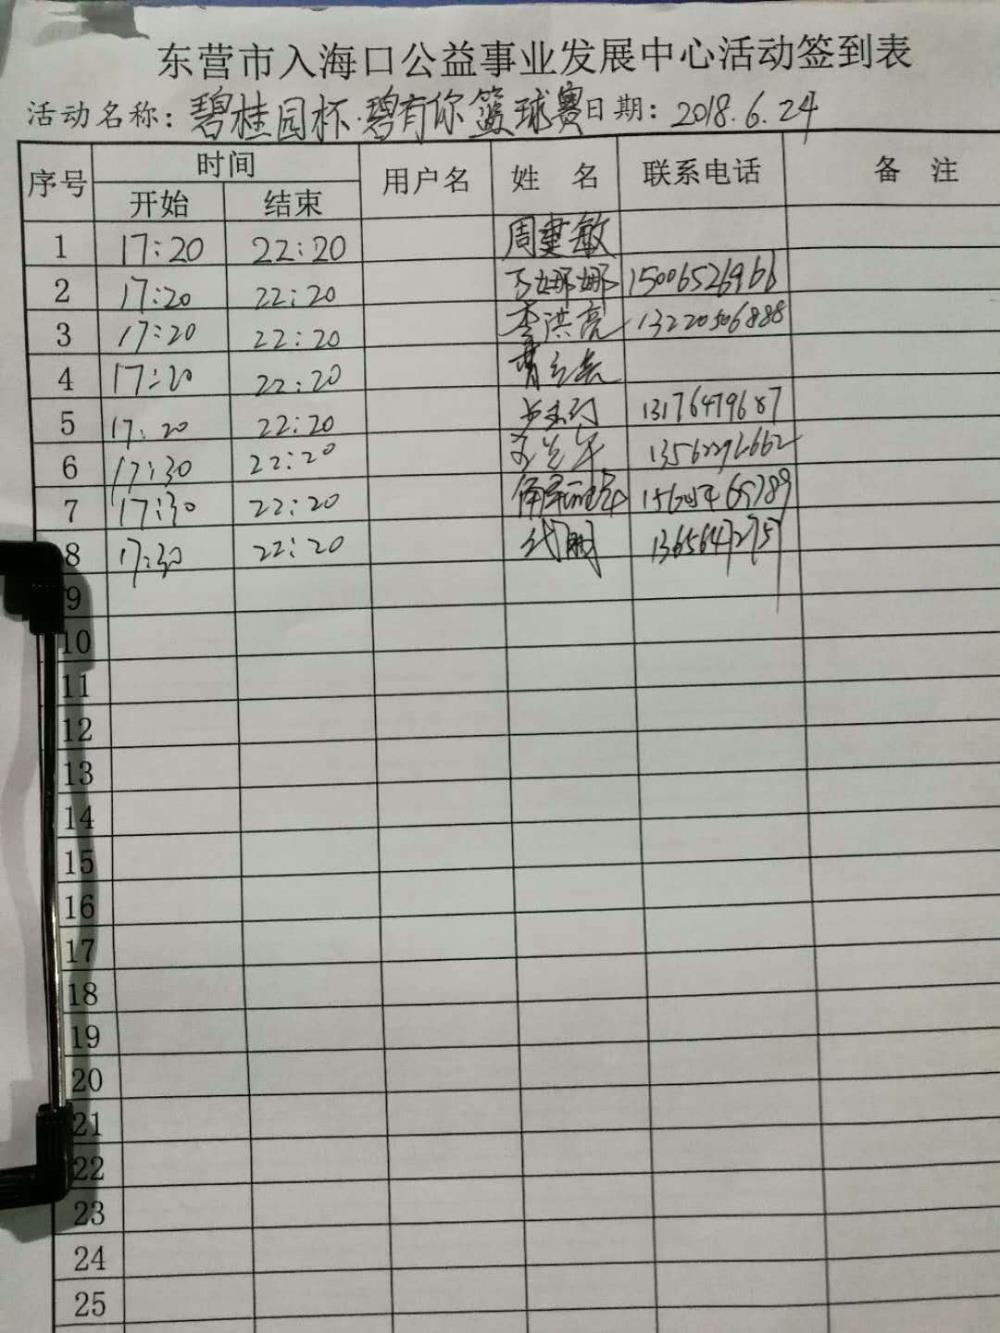 东营市入海口公益事业发展中心活动签到表
活动名称：碧桂园杯·碧有你篮球赛 日期：2018.6.24
序号 时间 用户名 姓名 联系电话 备注
开始 结束
1 17:20 22:20 周建敏
2 17:20 22:20 娜娜 15006526966
3 17:20 22:20 李洪亮 13220506888
4 17:20 22:20
5 17:20 22:20 13176479687
6 17:30 22:20
7 17:30 22:20
8 17:30 22:20 代鹏
9
10
11
12
13
14
15
16
17
18
19
20
21
22
23
24
25